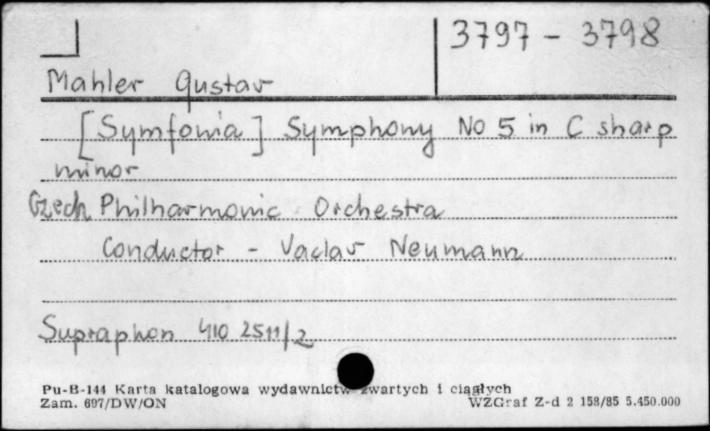 3797 - 3798
Mahler Gustav
[Symfonia] Symphony No 5 in C sharp
minor
Czech Philharmonic Orchestra
Conductor - Vaclav Neumann
Supraphon 410 2511/2
Pu-B-144 Karta katalogowa wydawnictw zwartych i ciągłych
Zam. 697/DW/ON
WZGraf Z-d 2 158/85 5.450.000